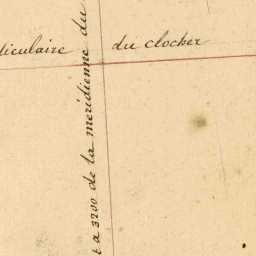 diculaire du clocher
t a 3200 de la meridienne du